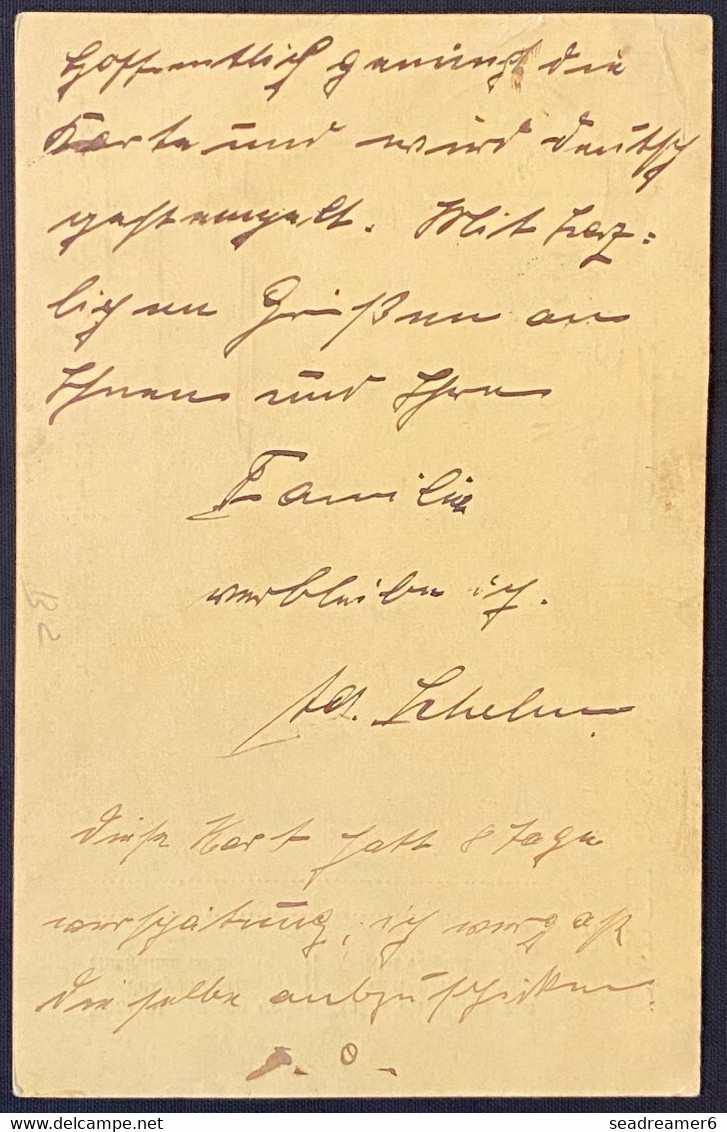 Hoffentlich genügt die
Karte und wird deutsch
gestempelt. Mit herz=
lichen Grüßen an
Ihnen und Ihre
Familie
verbleibe ich.
Ad. Schelm
diese Kart hatt 8 Tage
verspätung, ich vergaß
dieselbe abzuschicken.
B2
seadreamer6